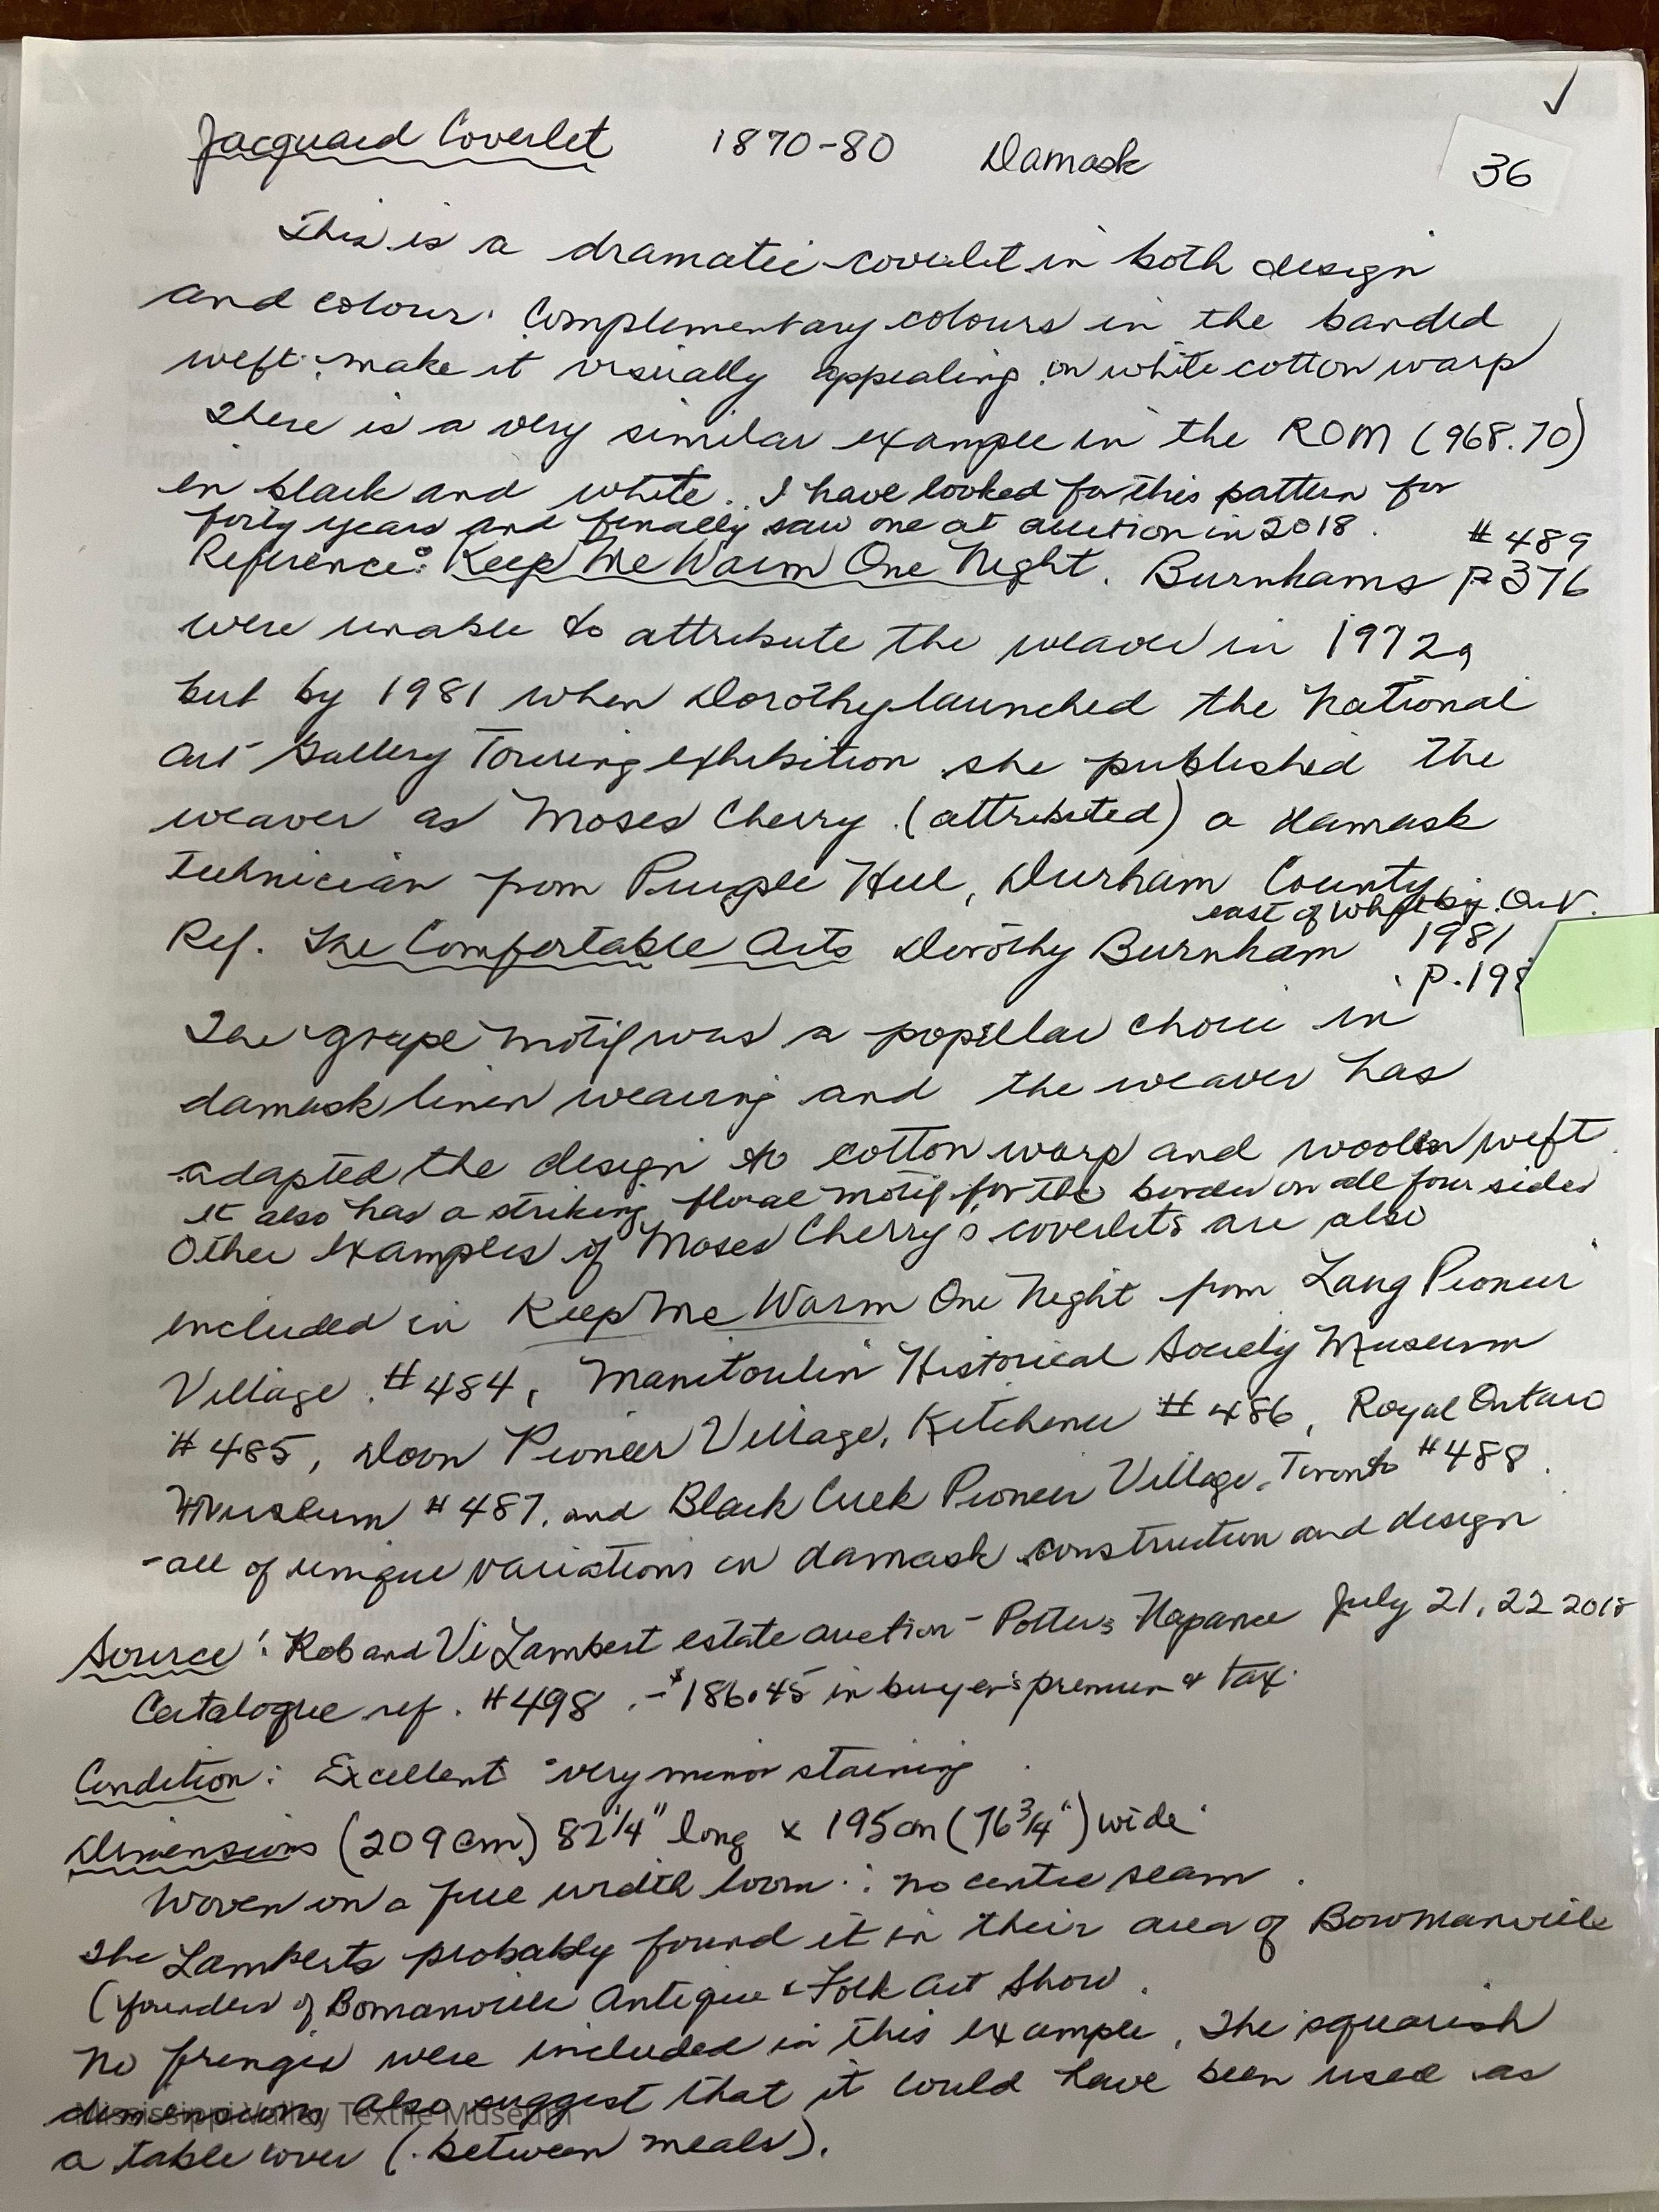 ✓
Jacquard Coverlet 1870-80 Damask 36
This is a dramatic coverlet in both design
and colour. Complementary colours in the banded
weft make it visually appealing on white cotton warp
There is a very similar example in the ROM (968.70)
in black and white. I have looked for this pattern for
forty years and finally saw one at auction in 2018. #489
Reference: Keep Me Warm One Night. Burnhams P376
were unable to attribute the weaver in 1972,
but by 1981 when Dorothy launched the National
Art Gallery Touring exhibition she published the
weaver as Moses Cherry (attributed) a damask
technician from Purple Hill, Durham County
east of Whitby. Ont.
Ref. The Comfortable Arts Dorothy Burnham 1981
P.198
The grape motif was a popular choice in
damask linen weaving and the weaver has
adapted the design to cotton warp and woolen weft.
It also has a striking floral motif for the border on all four sides
Other examples of Moses Cherry's coverlets are also
included in Keep Me Warm One Night from Lang Pioneer
Village #484, Manitoulin Historical Society Museum
#485, Doon Pioneer Village, Kitchener #486, Royal Ontario
Museum #487, and Black Creek Pioneer Village, Toronto #488.
- all of unique variations in damask construction and design
Source: Rob and Vi Lambert estate auction - Potters Napanee July 21, 22 2018
Catalogue ref. #498. - $186.45 in buyer's premium & tax.
Condition: Excellent very minor staining
Dimensions (209cm) 82 1/4" long x 195cm (76 3/4") wide
Woven on a full width loom ∴ no centre seam.
The Lamberts probably found it in their area of Bowmanville
(founders of Bomanville Antique & Folk Art Show.
No fringes were included in this example. The squarish
dimensions also suggest that it could have been used as
a table cover (between meals).
Mississippi Valley Textile Museum